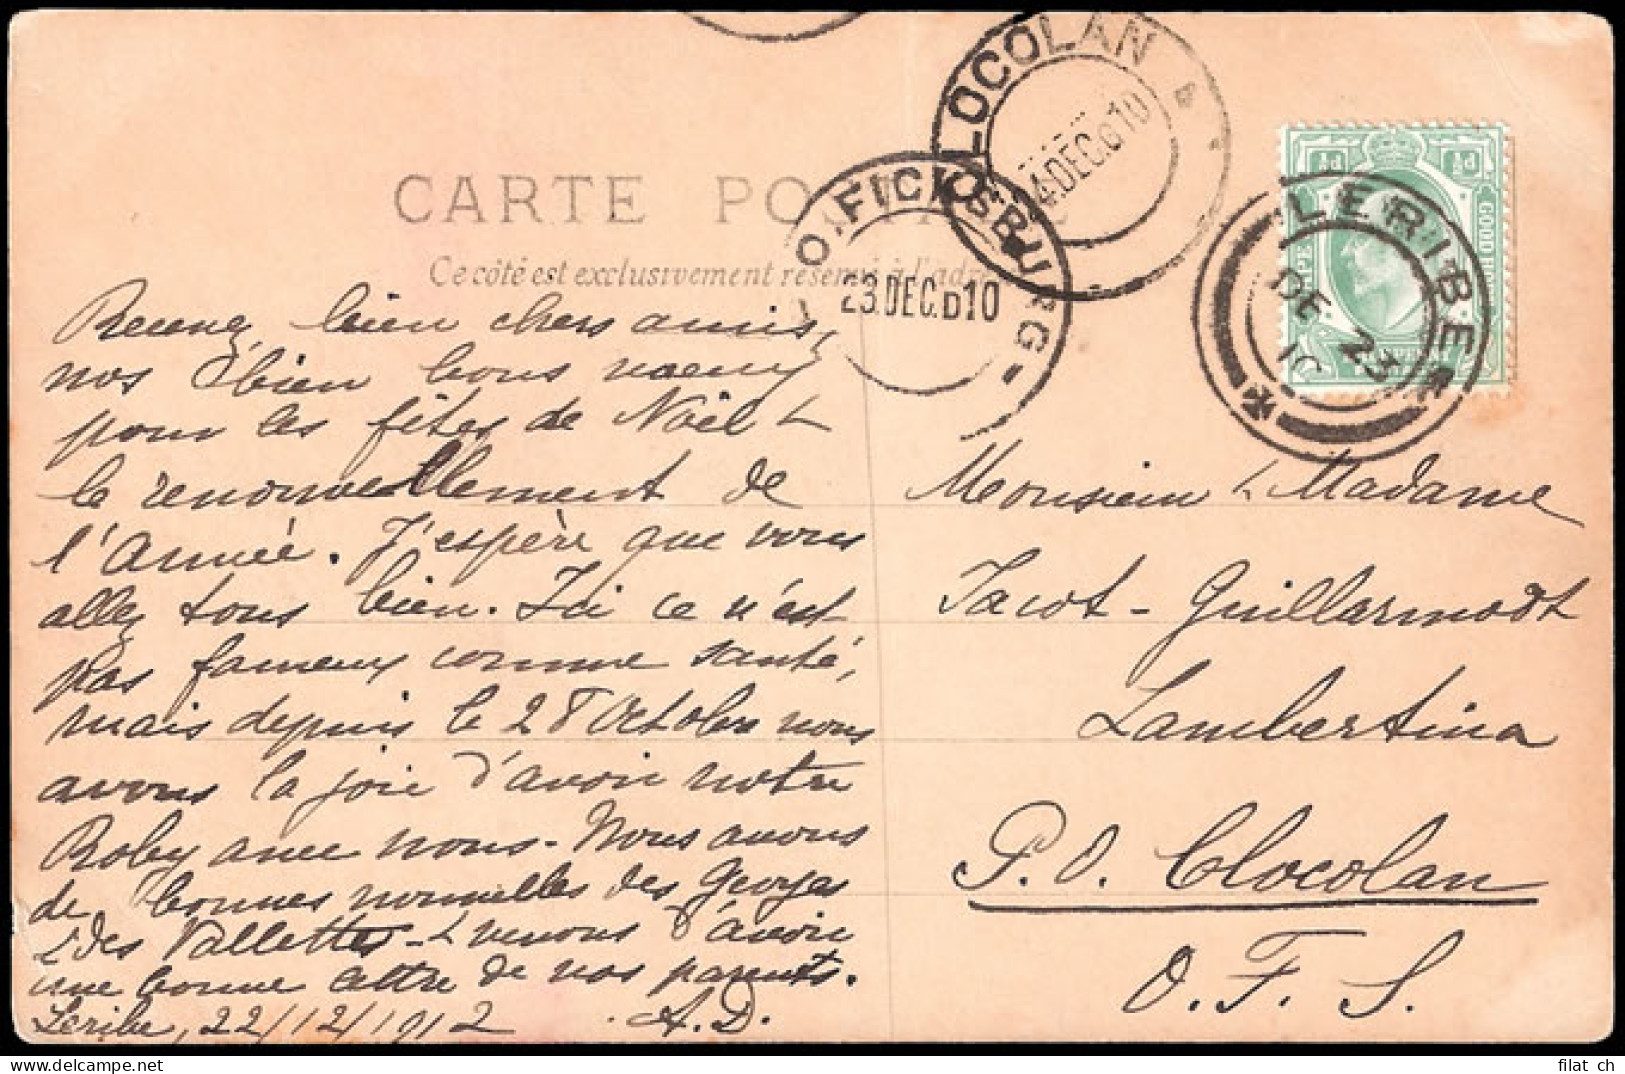 CLOCOLAN
24.DEC.G10
FICKSBURG
O.
23.DEC.D10
LERIBE
DE 23
10
½d ½d
GOOD
CARTE PO
Ce côté est exclusivement réservé à l'adre
Recevez, bien chers amis,
nos bien bons voeux
pour les fêtes de Noël &
le renouvellement de
l'Année. J'espère que vous
allez tous bien. Ici ce n'est
pas fameux comme santé,
mais depuis le 28 Octobre nous
avons la joie d'avoir notre
Roby avec nous. Nous avons
de bonnes nouvelles des Georges
& des Vallettes & venons d'avoir
une bonne lettre de nos parents.
Leribe, 22/12/1912 A.D.
Monsieur & Madame
Jacot-Guillarmodt
Lambertina
P.O. Clocolan
O.F.S.
filat ch